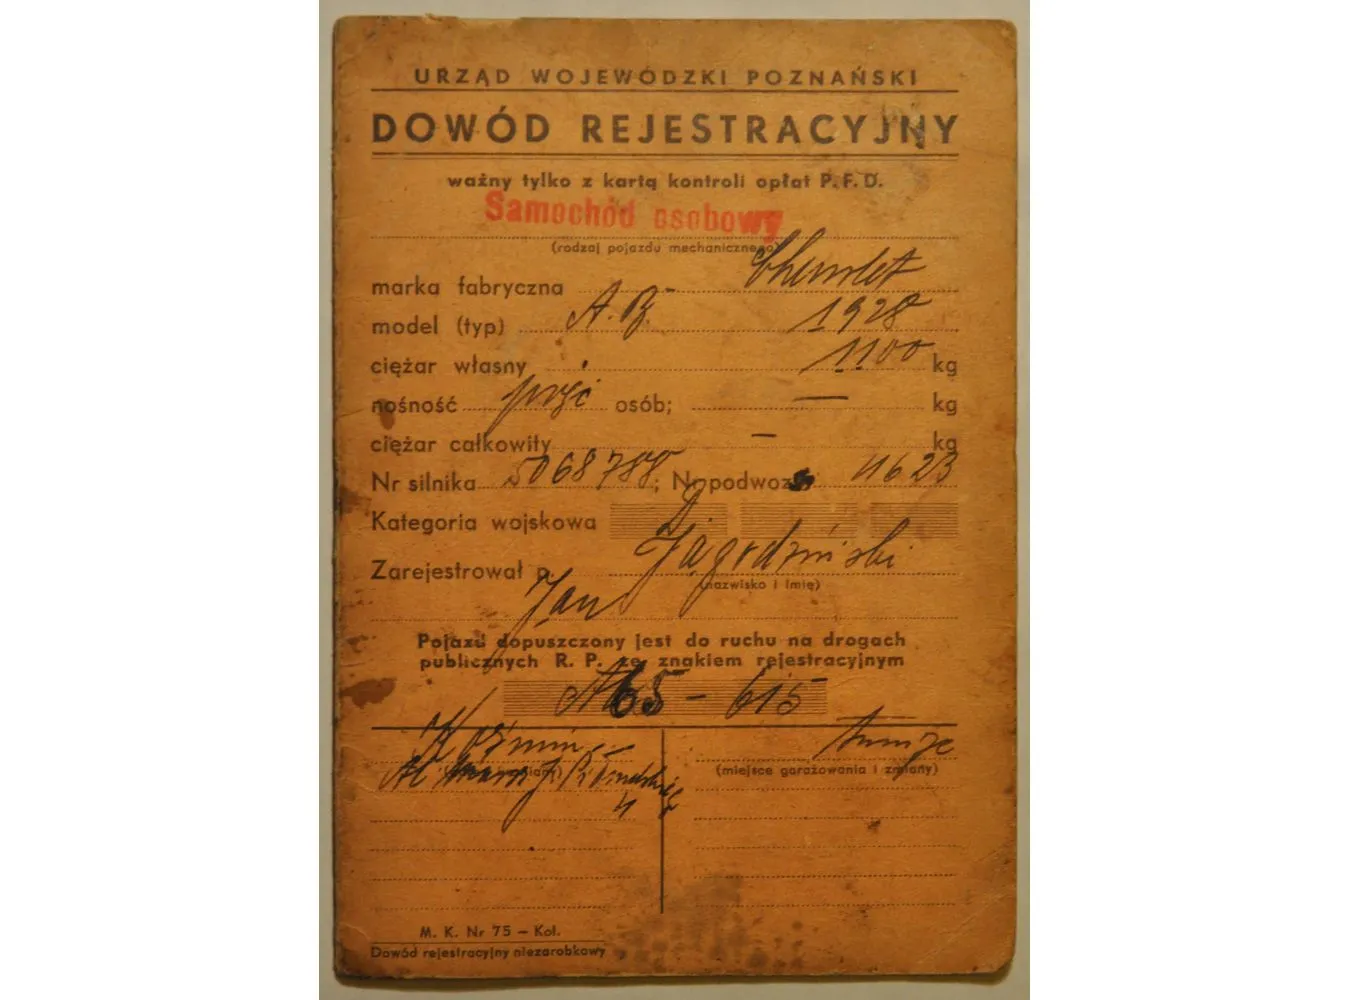 URZĄD WOJEWÓDZKI POZNAŃSKI
DOWÓD REJESTRACYJNY
ważny tylko z kartą kontroli opłat P.F.D.
Samochód osobowy
(rodzaj pojazdu mechanicznego)
marka fabryczna Chevrolet
model (typ) A.B. 1928
ciężar własny 1100 kg
nośność pięć osób; — kg
ciężar całkowity — kg
Nr silnika 5068788; Nr podwozia 11623
Kategoria wojskowa
Zarejestrował p. Jagodziński
(nazwisko i imię)
Jan
Pojazd dopuszczony jest do ruchu na drogach
publicznych R. P. ze znakiem rejestracyjnym
A65-615
Koźmin
(miejsce garażowania i zmiany)
J. Piłsudskiego
M. K. Nr 75 – Kol.
Dowód rejestracyjny niezarobkowy